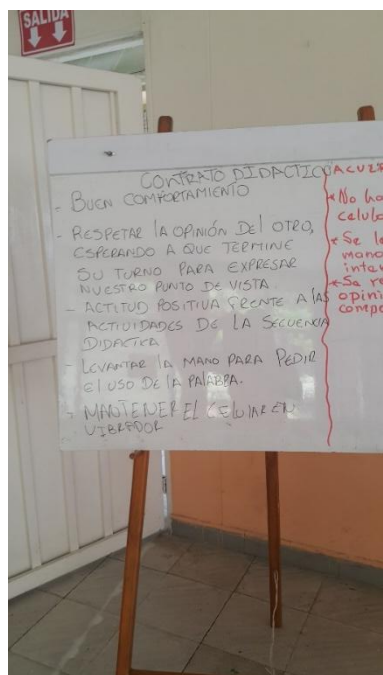 SALIDA
CONTRATO DIDACTICO
- BUEN COMPORTAMIENTO
- RESPETAR LA OPINIÓN DEL OTRO,
ESPERANDO A QUE TERMINE
SU TURNO PARA EXPRESAR
NUESTRO PUNTO DE VISTA.
- ACTITUD POSITIVA FRENTE A LAS
ACTIVIDADES DE LA SECUENCIA
DIDACTICA
- LEVANTAR LA MANO PARA PEDIR
EL USO DE LA PALABRA.
- MANTENER EL CELULAR EN
VIBRADOR
* No
* Se
* Se